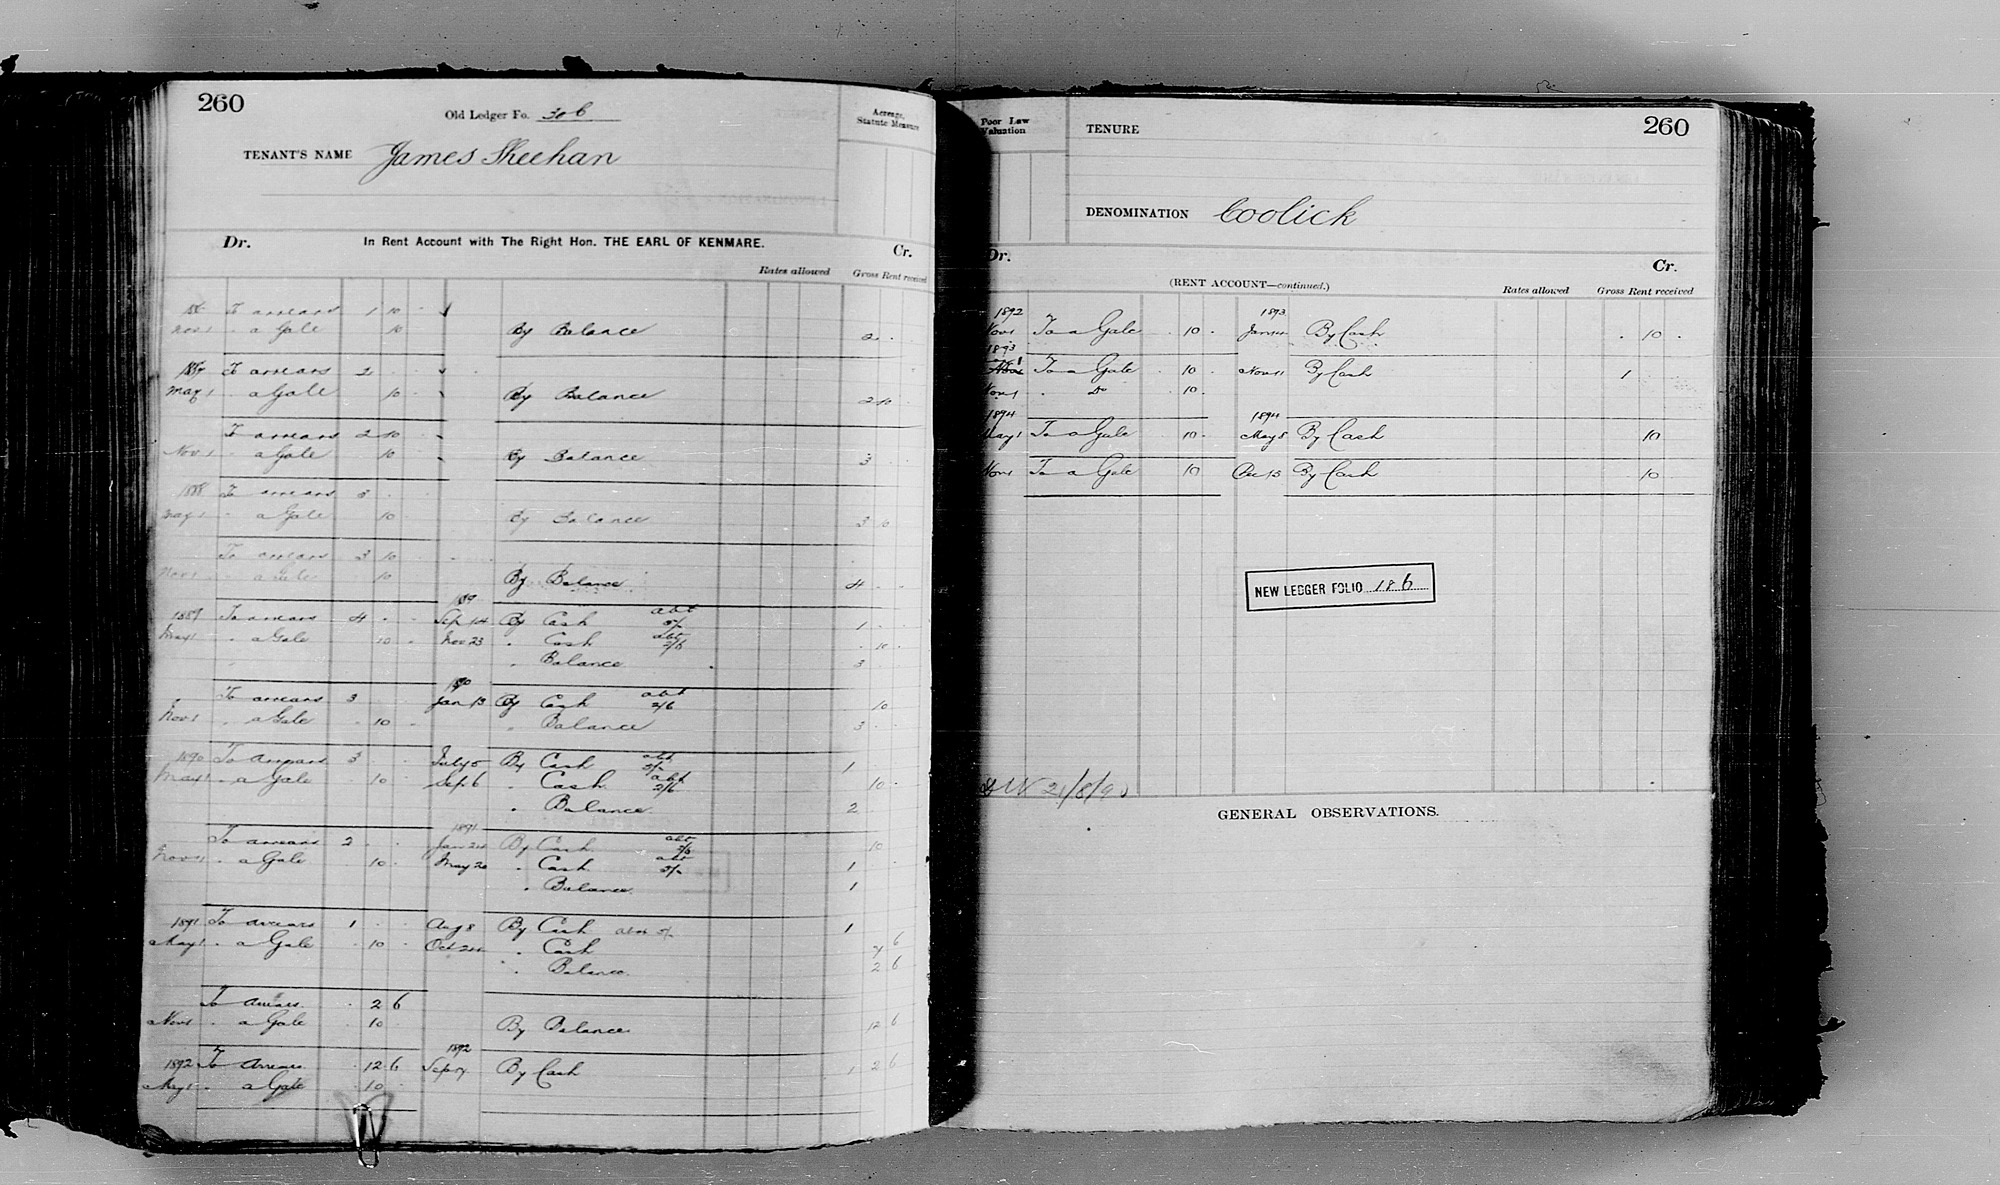 260
Old Ledger Fo. 306
Acreage, Statute Measure
TENANT'S NAME James Sheehan
Dr. In Rent Account with The Right Hon. THE EARL OF KENMARE. Cr.
Rates allowed Gross Rent received
To arrears 1 10 -
Nov 1 - a Gale 10 By Balance 2 -
1887 To arrears 2 - -
May 1 a Gale 10 - By Balance 2 10 -
To arrears 2 10 -
Nov 1 a Gale 10 By Balance 3 - -
1888 To arrears 3 - -
May 1 - a Gale 10 - By Balance 3 10 -
To arrears 3 10 -
Nov 1 - a Gale 10 By Balance 4 - -
1889
1889 To arrears 4 - - Sep 14 By Cash abt 5/- 1 - -
May 1 - a Gale 10 - Nov 23 - Cash abt 2/6 - 10 -
- Balance 3
1890
To arrears 3 Jan 13 By Cash abt 2/6 10
Nov 1 - a Gale - 10 - - Balance 3 - -
1890 To Arrears 3 - - July 5 By Cash abt 5/- 1
May 1 - a Gale - 10 - Sep. 6 - Cash abt 2/6 10 -
- Balance 2
1891
To arrears 2 - - Jan 24 By Cash abt 2/6 10
Nov 1 - a Gale 10 - May 20 - Cash abt 5/- 1
- Balance 1
1891 To arrears 1 - - Aug 8 By Cash abt 5/- 1
May 1 - a Gale - 10 - Oct 24 - Cash 7 6
- Balance 2 6
To Arrears - 2 6
Nov 1 - a Gale - 10 By Balance 12 6
1892
1892 To Arrears - 12 6 Sep 17 By Cash 1 2 6
May 1 - a Gale - 10 -
Poor Law Valuation
TENURE
260
DENOMINATION Coolick
Dr. Cr.
(RENT ACCOUNT—continued.)
Rates allowed Gross Rent received
1892 1893
Nov 1 To a Gale - 10 - Jan By Cash - 10 -
1893
To a Gale - 10 - Nov 11 By Cash 1
Nov 1 - Do - 10 -
1894 1894
May 1 To a Gale 10 - May 8 By Cash 10
Nov 1 To a Gale 10 Dec 15 By Cash 10
NEW LEDGER FOLIO 186
GENERAL OBSERVATIONS.